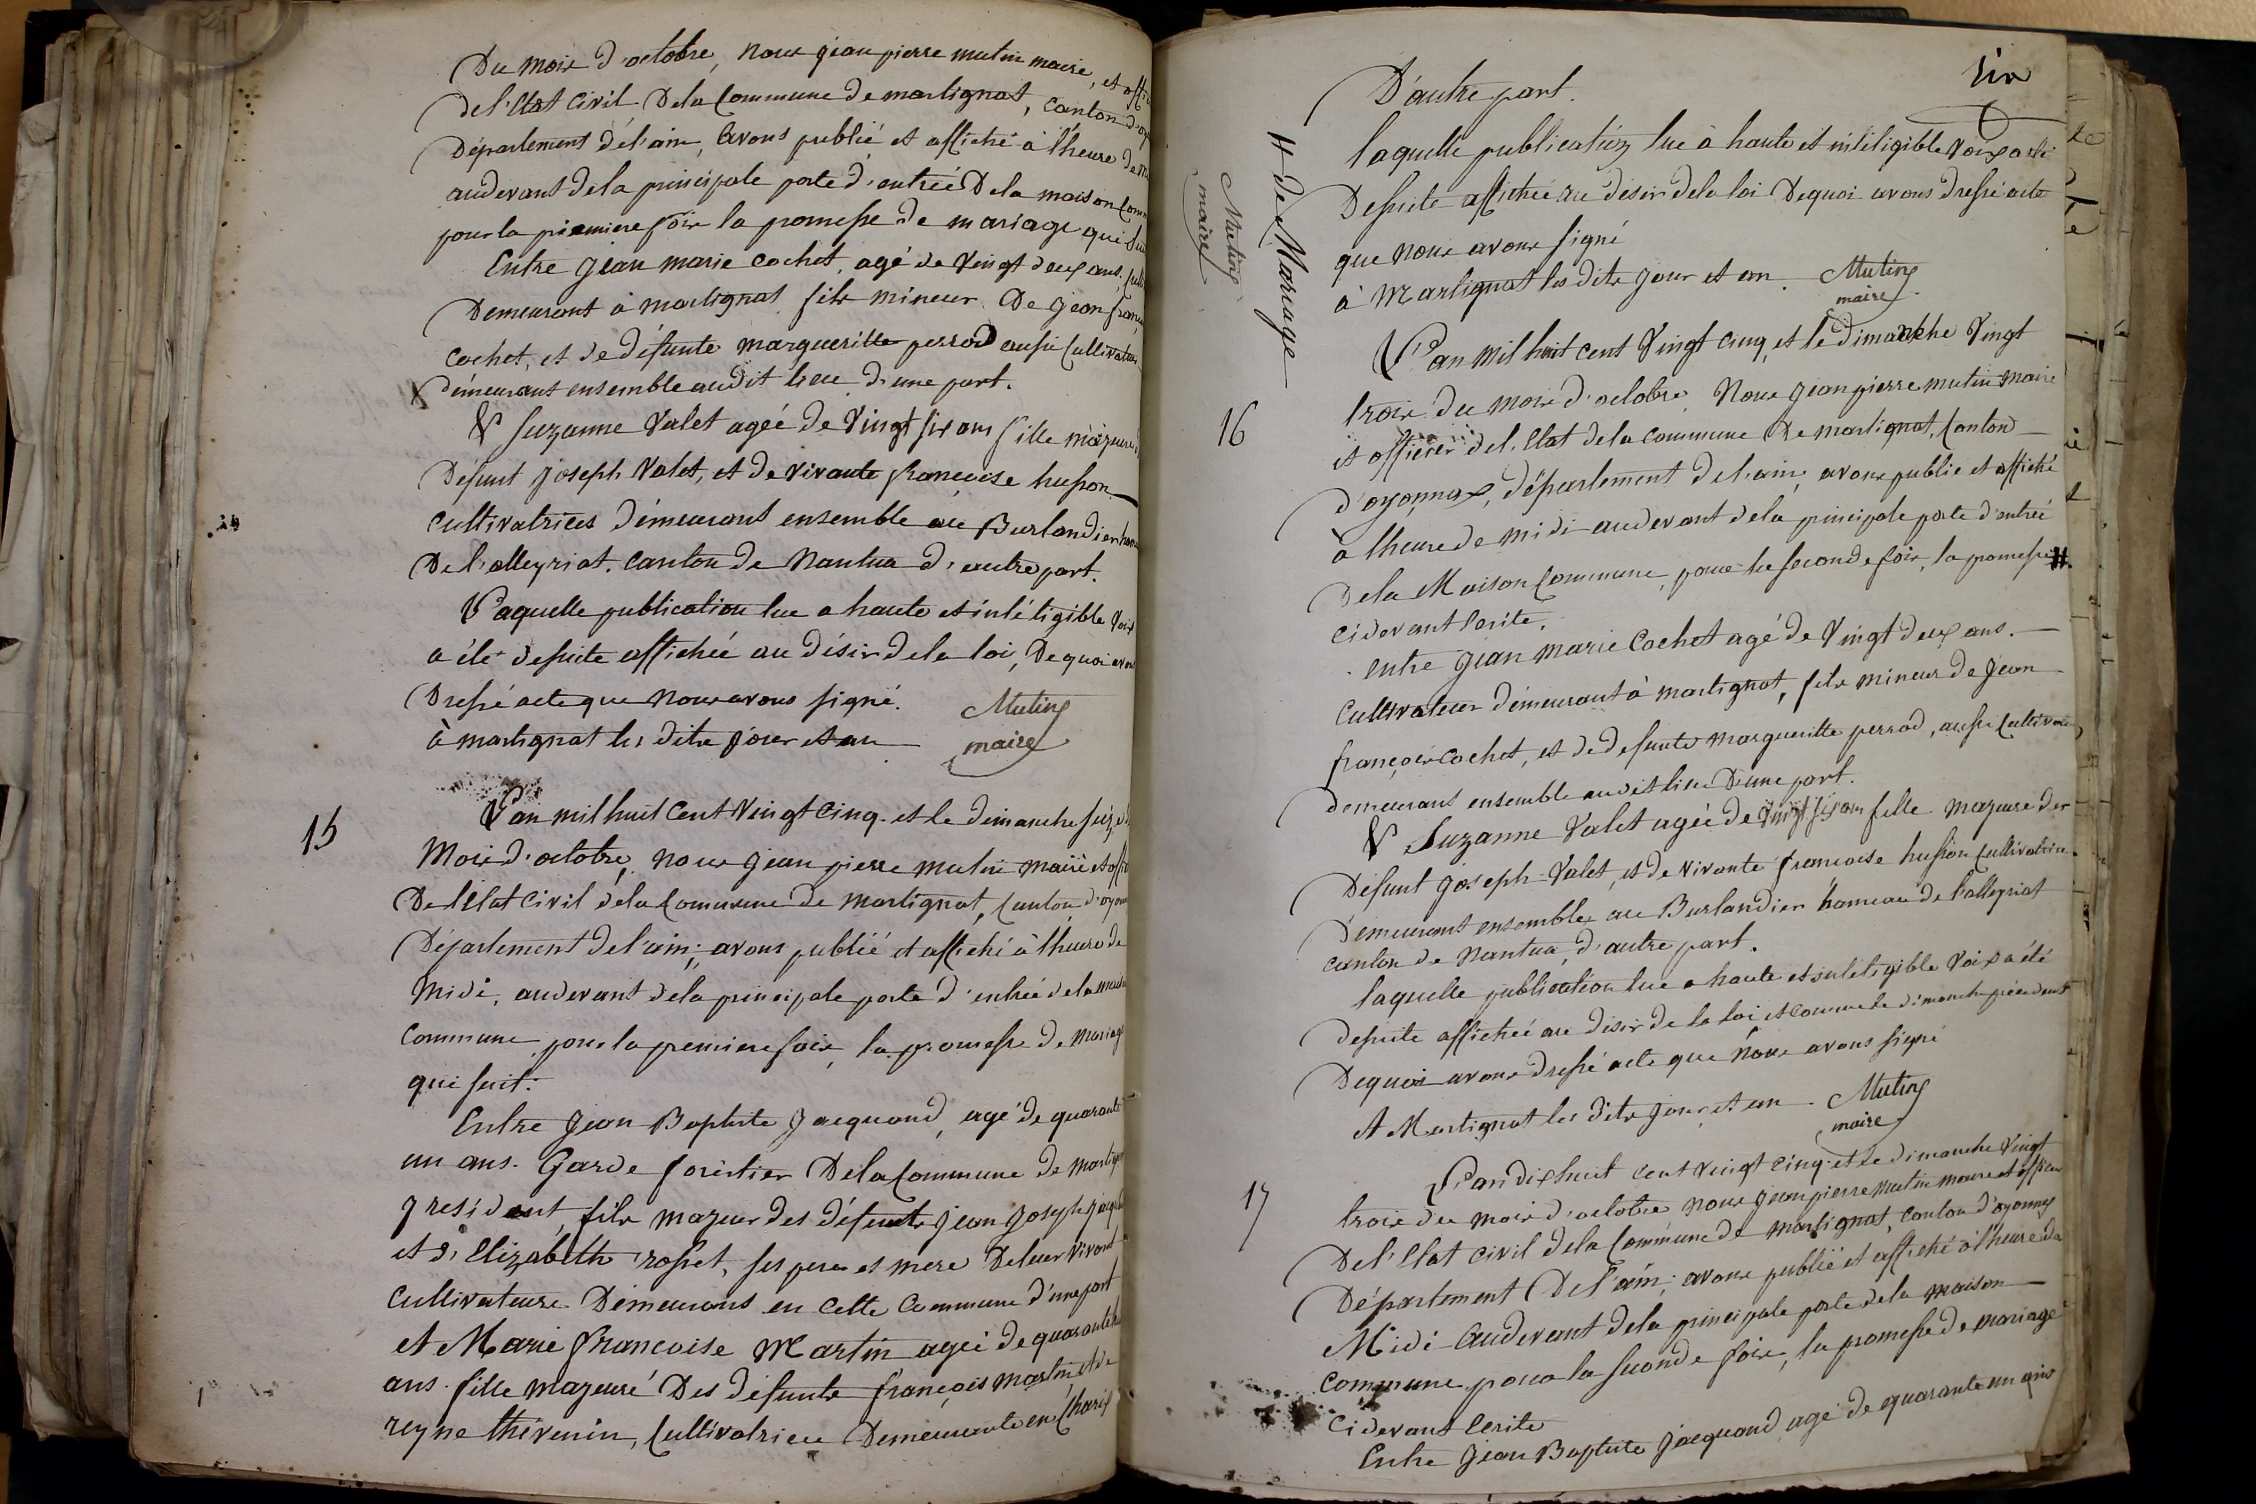 Du mois d'octobre, nous jean pierre mutin maire, et offi
de l'Etat civil de la Commune de martignat, canton d'oy
Département de l'ain, avons publié et affiché à l'heure de m
au devant de la principale porte d'entrée de la maison Com
pour la premiere fois la promesse de mariage qui sui
Entre jean marie cochet, agé de vingt deux ans, cult
Demeurant à martignat fils mineur De jean franc
cochet, et de défunte margueritte perrod aussi Cultivateu
Démeurant ensemble audit lieu d'une part.
& suzanne Valet ageé de Vingt six ans fille majeure d
Défunt joseph Valet, et de vivante françoise husson
cultivatrices démeurant ensemble au Burlandier ham
De l'alleyriat. canton de Nantua d'autre part.
Laquelle publication lue a haute et intéligible voix
a été desuite affichée au désir de la loi, De quoi avons
Dressé acte que nous avons signé.
à martignat les dits jour et an
Mutin
maire
15
L'an mil huit Cent Vingt Cinq. et le dimanche seize d
Mois d'octobre, nous jean pierre mutin maire et offi
De l'Etat Civil dela Commune de martignat, Canton d'oyon
Département de l'ain; avons publié et affiché à l'heure de
Midi, au devant dela principale porte d'entrée dela mais
Commune pour la premiere fois, la promesse de mariag
qui suit:
Entre jean Baptiste Jacquand, agé de quarante
un ans. Garde foréstier De la Commune de martigna
y résidant, fils majeur des défunts jean joseph jacqu
et d'Elizabéth rosset, ses pere et mere De leur vivant
Cultivateurs Démeurans en cette Commune d'une part
et Marie françoise Martin ageé de quarante
ans. fille majeuré Des défunts françois martin et de
reyne thévenin, Cultivatrice Demeurante en Charix
Six
D'autre part.
laquelle publication lue à haute et intéligible Voix a été
Desuite affichée au désir dela loi De quoi avons dressé acte
que nous avons signé
à Martignat les dits jour et an.
Mutin
maire
# De Mariage
Mutin
maire
16
L'an mil huit cent Vingt cinq, et le dimanche Vingt
trois du mois d'octobre Nous jean pierre mutin maire
et officier de l'Etat dela commune De martignat, Canton
d'oyonnax, département de l'ain, avons publié et affiché
à l'heure de midi au devant dela principale porte d'entrée
Dela Maison Commune, pour la seconde fois, la promesse #
cidevant Ecrite,
Entre jean marie Cochet agé de Vingt deux ans.
Cultivateur démeurant à martignat, fils mineur de jean
françois Cochet, et de defunte margueritte perrod, aussi Cultivateur
demeurant ensemble audit lieu D'une part.
& Suzanne Valet ageé de vingt six ans fille majeure de
Défunt joseph Valet, et de vivante françoise husson Cultivatrice
démeurant ensembles au Burlandier hameau de l'alleyriat
canton de Nantua, d'autre part.
laquelle publication lue a haute et intéligible Voix a été
desuite affichée au désir de la loi et comme le dimanche précédent
Dequoi avons dressé acte que Nous avons signé
A Martignat les dits jour et an
Mutin
maire
17
L'an dix huit cent vingt cinq et le dimanche Vingt
trois du mois d'octobre nous jean pierre mutin maire et officier
De l'Etat civil dela Commune de martignat, canton d'oyonnax
Département De l'ain; avons publié et affiché à l'heure de
Midi audevant dela principale porte dela maison
commune pour la seconde fois, la promesse de mariage
cidevant Ecrite
Entre jean Baptiste jacquand agé de quarante un ans